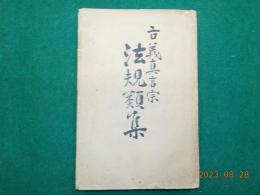 古義真言宗
法規類集
2023-08-28